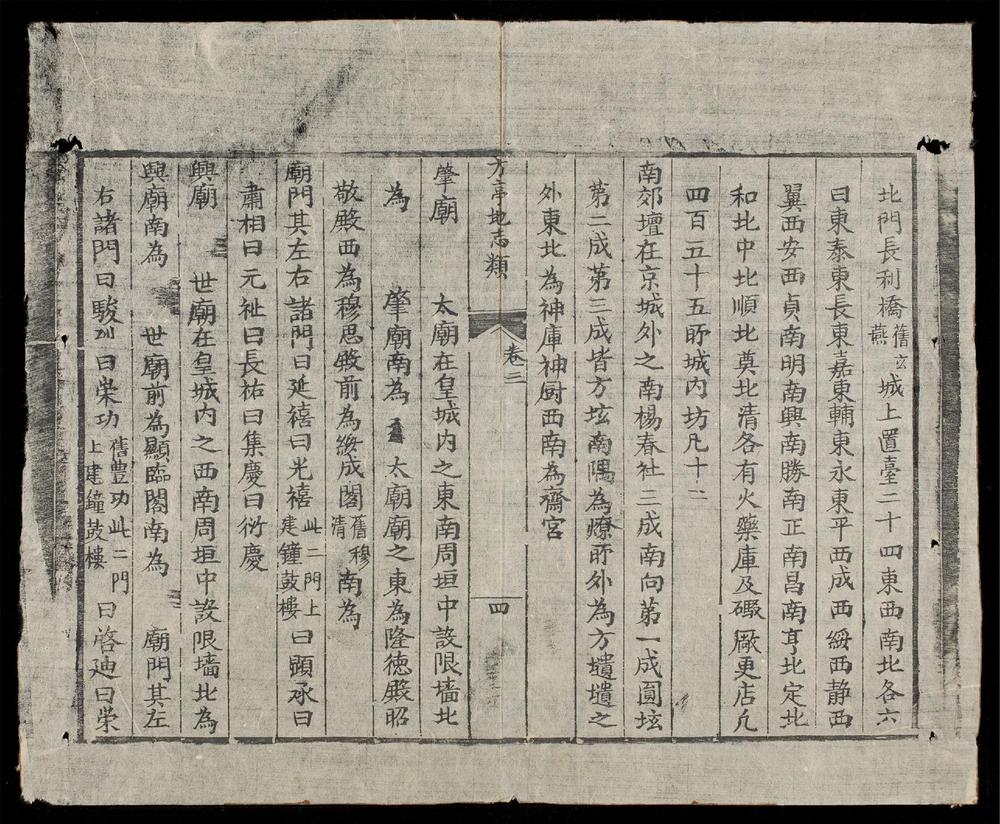 北門長利橋舊玄燕城上置臺二十四東西南北各六
曰東泰東長東嘉東輔東永東平西成西綏西静西
翼西安西貞南明南興南勝南正南昌南亨北定北
和北中北順北奠北清各有火藥庫及碬厰更店凢
四百五十五所城内坊凢十二
南郊壇在京城外之南楊春社三成南向第一成圓垓
第二成第三成皆方垓南隅為燎所外為方壝壝之
外東北為神庫神厨西南為齋宮
方亭地志類 卷三 四
肇廟 太廟在皇城内之東南周垣中設限墻北
為 肇廟南為 太廟廟之東為隆德殿昭
敬殿西為穆思殿前為綏成閣舊穆清南為
廟門其左右諸門曰延禧曰光禧此二門上建鐘鼓樓曰顕承曰
肅相曰元祉曰長祐曰集慶曰衍慶
興廟 世廟在皇城内之西南周垣中設限墻北為
興廟南為 世廟前為顯臨閣南為 廟門其左
右諸門曰駿烈曰崇功舊豊功此二門上建鐘鼓樓曰啓廸曰崇